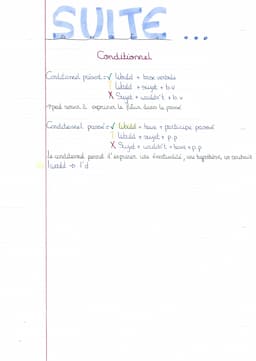 SUITE ...
Conditionnel
Conditionnel présent = ✓ Would + base verbale
! Would + sujet + b.v
X Sujet + wouldn't + b.v
→ peut servir à exprimer le futur dans le passé
Conditionnel passé = ✓ Would + have + participe passé
! Would + sujet + p.p
X Sujet + wouldn't + have + p.p
le conditionnel permet d'exprimer une éventualité, une hypothèse, un souhait
! would → 'd